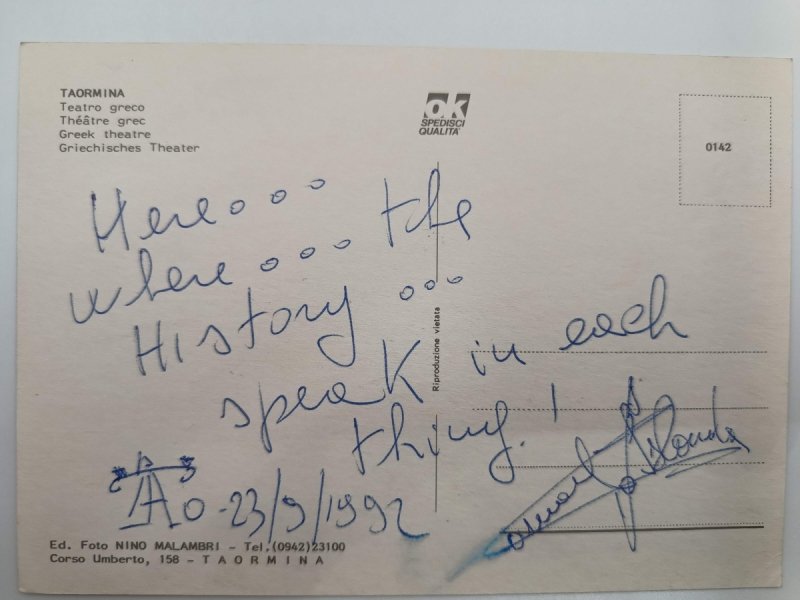 TAORMINA
Teatro greco
Théâtre grec
Greek theatre
Griechisches Theater
ok
SPEDISCI
QUALITA'
0142
Here... the
where...
History...
speak in each
thing!
23/9/1992
Riproduzione vietata
Ed. Foto NINO MALAMBRI - Tel. (0942)23100
Corso Umberto, 158 - TAORMINA